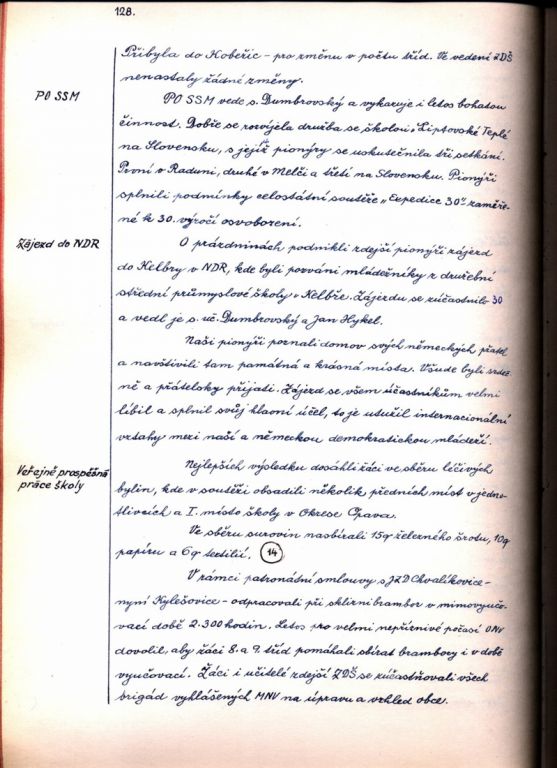 128.
Přibyla do Kobeřic - pro změnu v počtu tříd. Ve vedení ZDŠ
nenastaly žádné změny.
PO SSM
PO SSM vede s. Dumbrovský a vykazuje i letos bohatou
činnost. Dobře se rozvíjela družba se školou v Liptovské Teplé
na Slovensku, s jejíž pionýry se uskutečnila tři setkání.
První v Raduni, druhé v Melči a třetí na Slovensku. Pionýři
splnili podmínky celostátní soutěže „Expedice 30" zaměře-
né k 30. výročí osvobození.
Zájezd do NDR
O prázdninách podnikli zdejší pionýři zájezd
do Kelbry v NDR, kde byli pozváni mládežníky z družební
střední průmyslové školy v Kelbře. Zájezdu se zúčastnilo 30
a vedl je s. uč. Dumbrovský a Jan Hykel.
Naši pionýři poznali domov svých německých přátel
a navštívili tam památná a krásná místa. Všude byli srdeč-
ně a přátelsky přijati. Zájezd se všem účastníkům velmi
líbil a splnil svůj hlavní účel, to je utužil internacionální
vztahy mezi naší a německou demokratickou mládeží.
Veřejně prospěšná
práce školy
Nejlepších výsledku dosáhli žáci ve sběru léčivých
bylin, kde v soutěži obsadili několik předních míst v jedno-
tlivcích a I. místo školy v Okrese Opava.
Ve sběru surovin nasbírali 15q železného šrotu, 10q
papíru a 6q textilií. 14
V rámci patronátní smlouvy s JZD Chvalíkovice -
nyní Kylešovice - odpracovali při sklizni brambor v mimovyučo-
vací době 2.300 hodin. Letos pro velmi nepříznivé počasí ONV
dovolil, aby žáci 8. a 9. tříd pomáhali sbírat brambory i v době
vyučovací. Žáci i učitelé zdejší ZDŠ se zúčastňovali všech
brigád vyhlášených MNV na úpravu a vzhled obce.